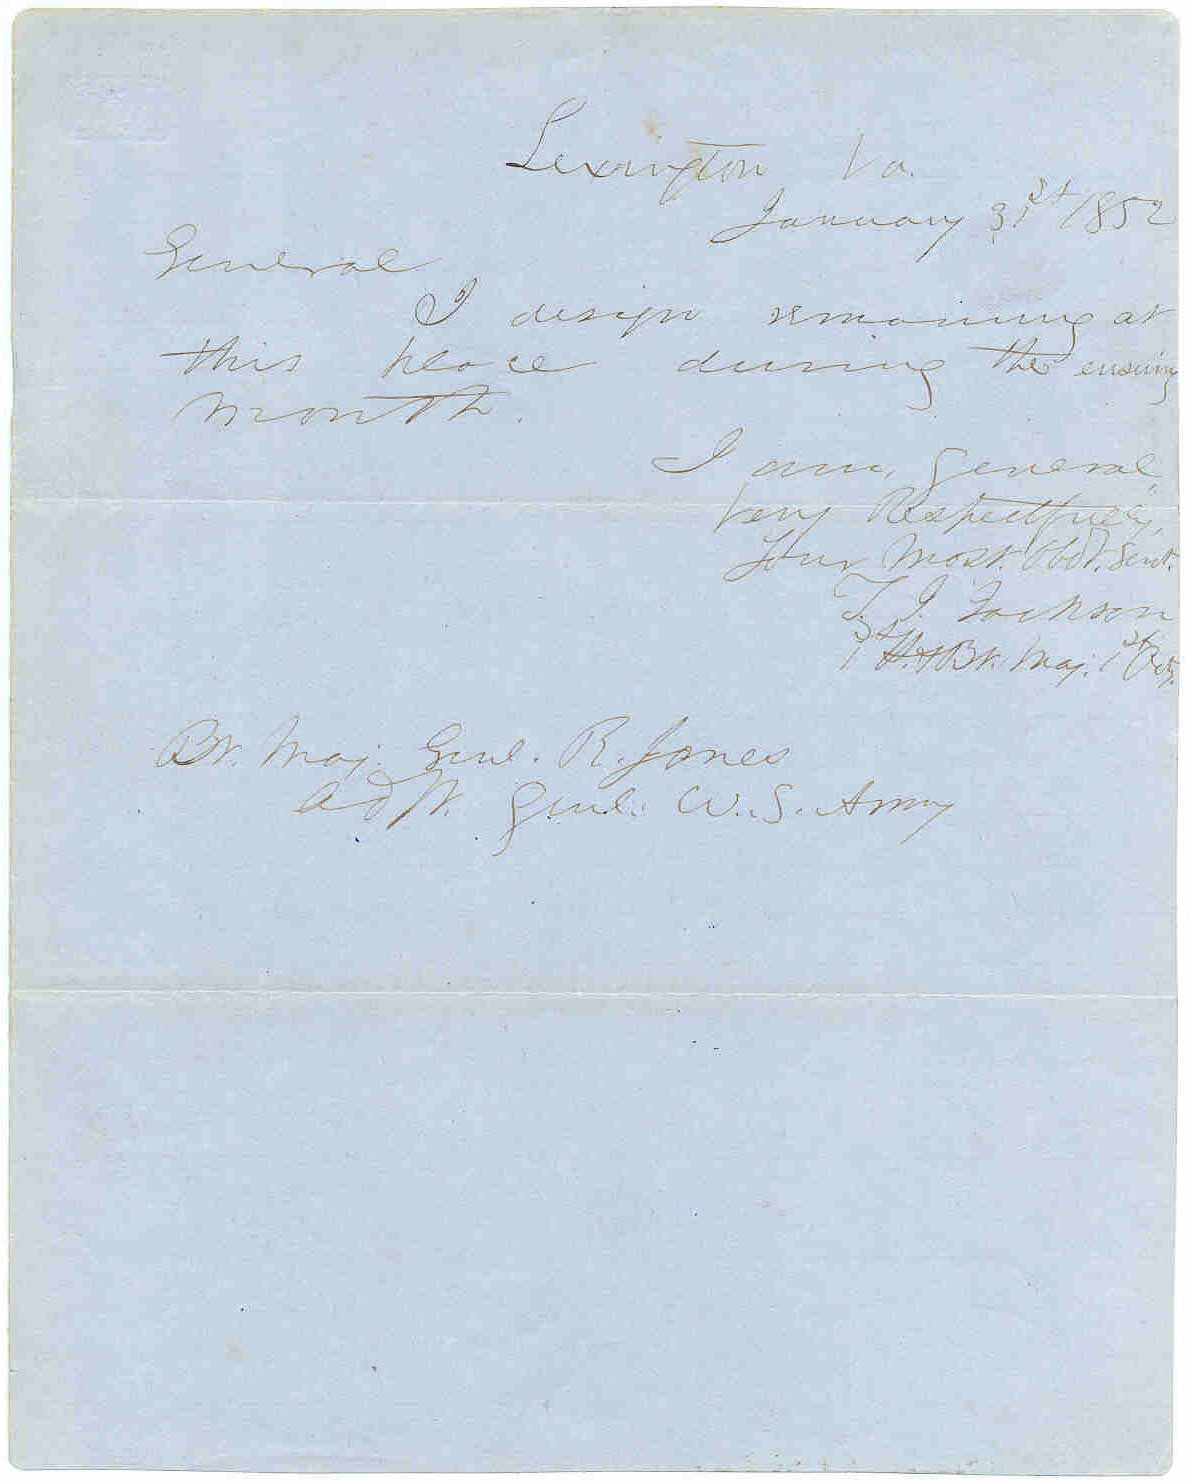 Lexington Va.
January 31st 1852
General
I design remaining at
this place during the ensuing
month.
I am, General,
Very Respectfully,
Your Most. Obdt. Servt.
T. J. Jackson
1st Lt. & Bt. Maj. 1st Arty.
Bt. Maj. Genl. R. Jones
Adjt. Genl. U.S. Army